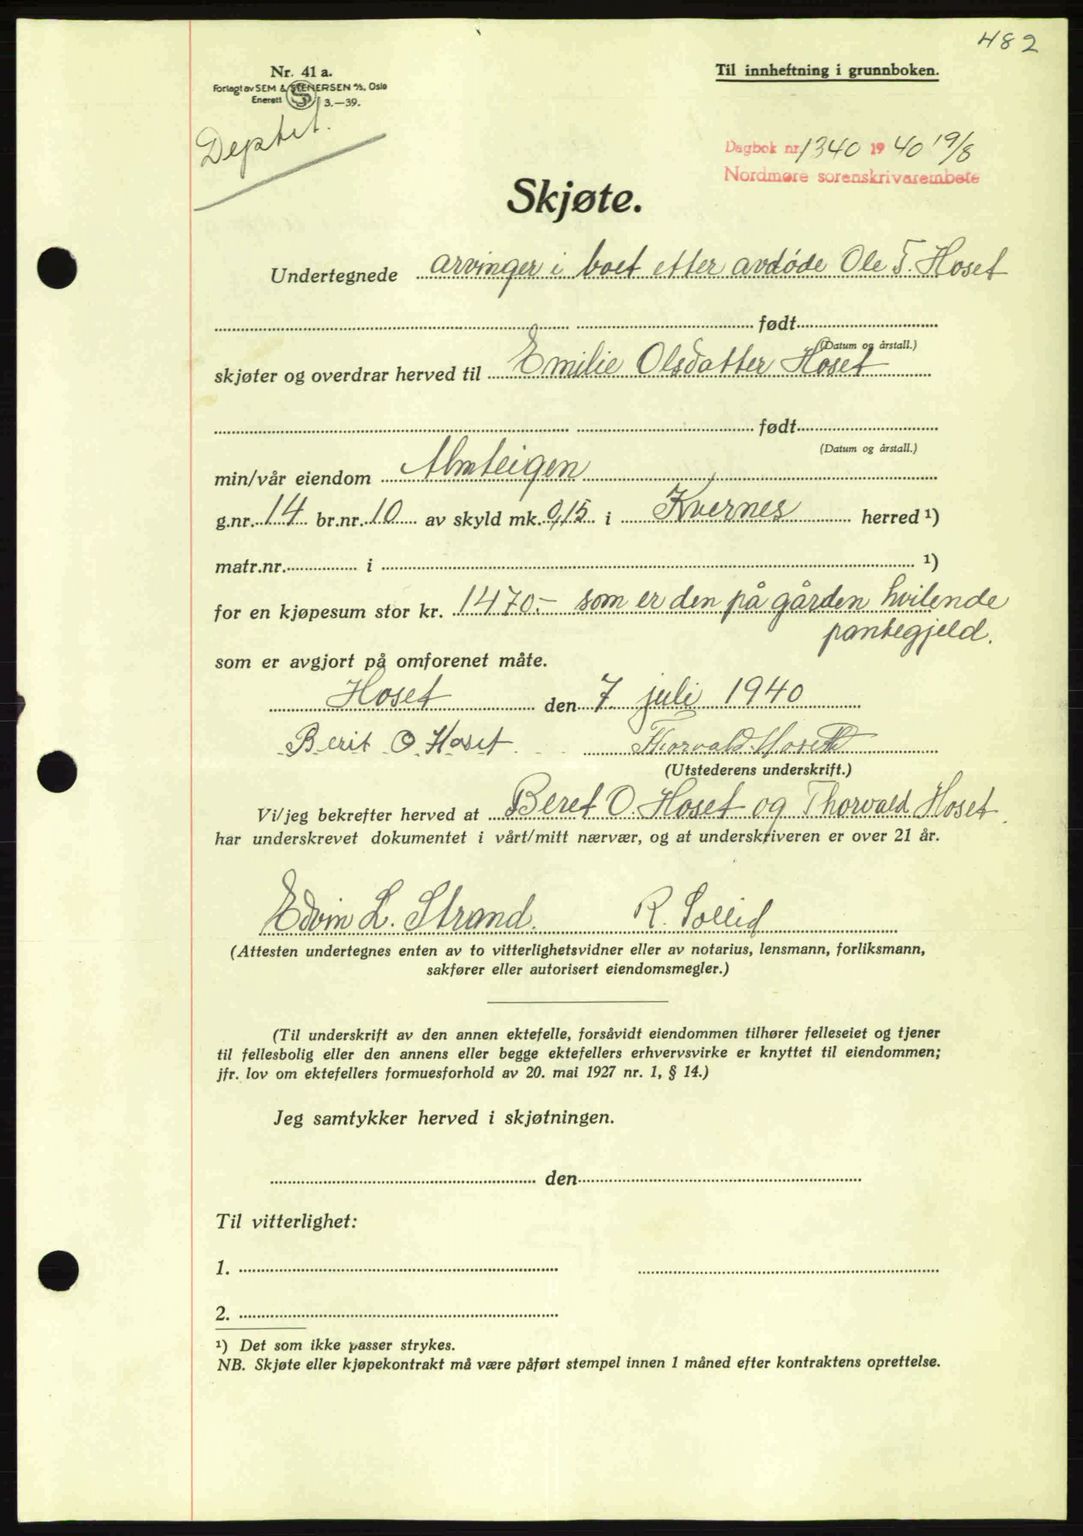 482
Nr. 41 a.
Forlagt av SEM & STENERSEN A/S, Oslo
Enerett S 3.—39.
Til innheftning i grunnboken.
Dagbok nr. 1340 1940 19/8
Nordmøre sorenskrivarembete
Skjøte.
Undertegnede arvinger i boet etter avdøde Ole T. Hoset
født
(Datum og årstall.)
skjøter og overdrar herved til Emilie Olsdatter Hoset
født
(Datum og årstall.)
min/vår eiendom Almteigen
g.nr. 14 br.nr. 10 av skyld mk. 0,15 i Kvernes herred ¹)
matr.nr. i ¹)
for en kjøpesum stor kr. 1470.- som er den på gården hvilende
pantegjeld.
som er avgjort på omforenet måte.
Hoset den 7 juli 1940
Berit O Hoset Thorvald Hoseth
(Utstederens underskrift.)
Vi/jeg bekrefter herved at Beret O. Hoset og Thorvald Hoset.
har underskrevet dokumentet i vårt/mitt nærvær, og at underskriveren er over 21 år.
Edvin L. Strand. R. Sollid
(Attesten undertegnes enten av to vitterlighetsvidner eller av notarius, lensmann, forliksmann,
sakfører eller autorisert eiendomsmegler.)
(Til underskrift av den annen ektefelle, forsåvidt eiendommen tilhører felleseiet og tjener
til fellesbolig eller den annens eller begge ektefellers erhvervsvirke er knyttet til eiendommen;
jfr. lov om ektefellers formuesforhold av 20. mai 1927 nr. 1, § 14.)
Jeg samtykker herved i skjøtningen.
den
Til vitterlighet:
1.
2.
¹) Det som ikke passer strykes.
NB. Skjøte eller kjøpekontrakt må være påført stempel innen 1 måned efter kontraktens oprettelse.